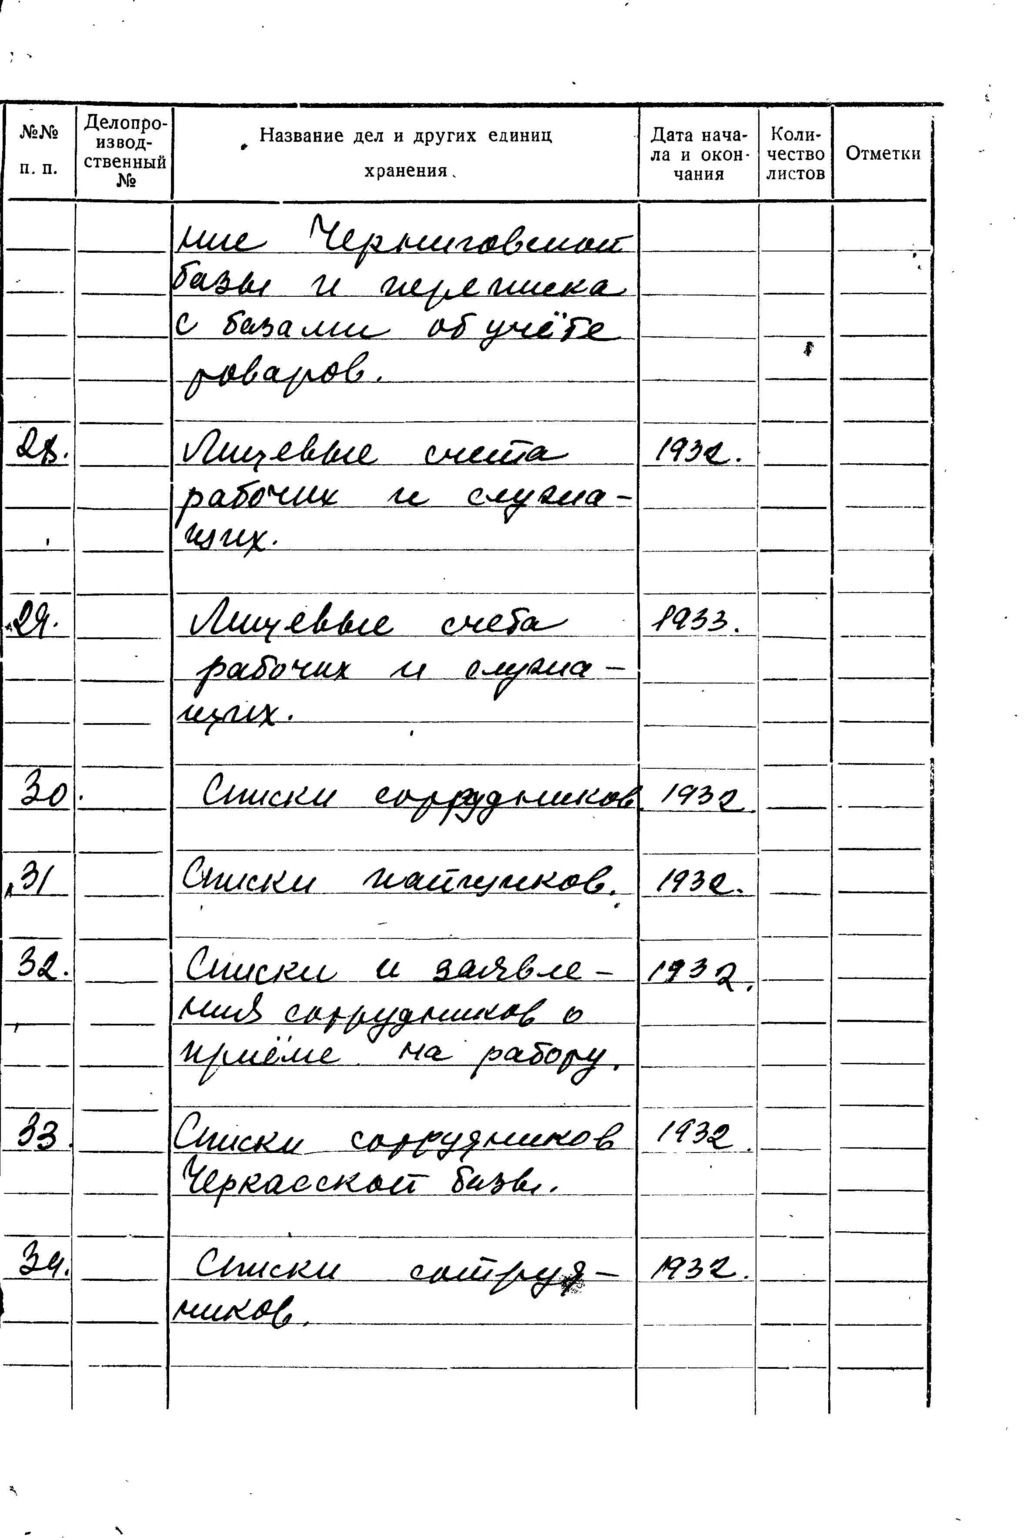 №№ п. п. Делопро-извод-ственный № Название дел и других единиц хранения. Дата нача-ла и окон-чания Коли-чество листов Отметки
ние Черниговской
базы и переписка
с базами об учёте
товаров.
28. Лицевые счета 1932.
рабочих и служа-
щих.
29. Лицевые счета 1933.
рабочих и служа-
щих.
30. Списки сотрудников. 1932.
31 Списки пайщиков. 1932.
32. Списки и заявле- 1932.
ния сотрудников о
приёме на работу.
33. Списки сотрудников 1932.
Черкасской базы.
34. Списки сотруд- 1932.
ников.